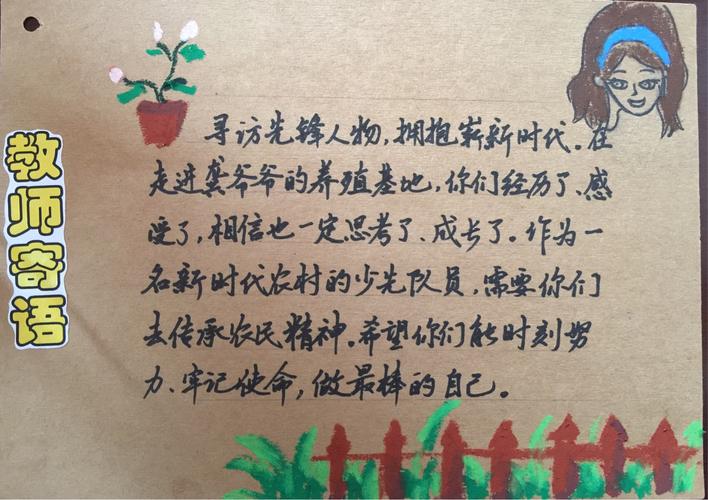 教师寄语
寻访先锋人物，拥抱崭新时代。在
走进龚爷爷的养殖基地，你们经历了、感
受了，相信也一定思考了、成长了。作为一
名新时代农村的少先队员，需要你们
去传承农民精神。希望你们能时刻努
力、牢记使命，做最棒的自己。